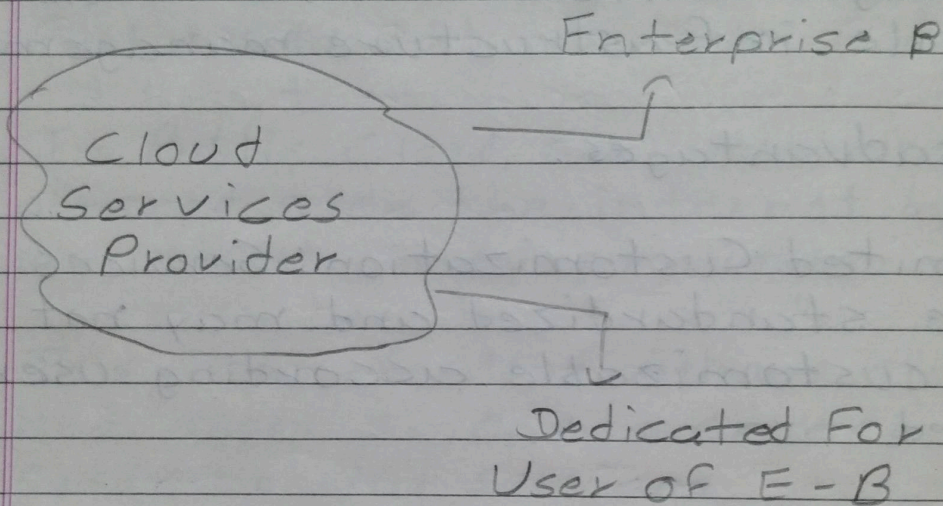 Enterprise B
Cloud
Services
Provider
Dedicated For
User of E-B